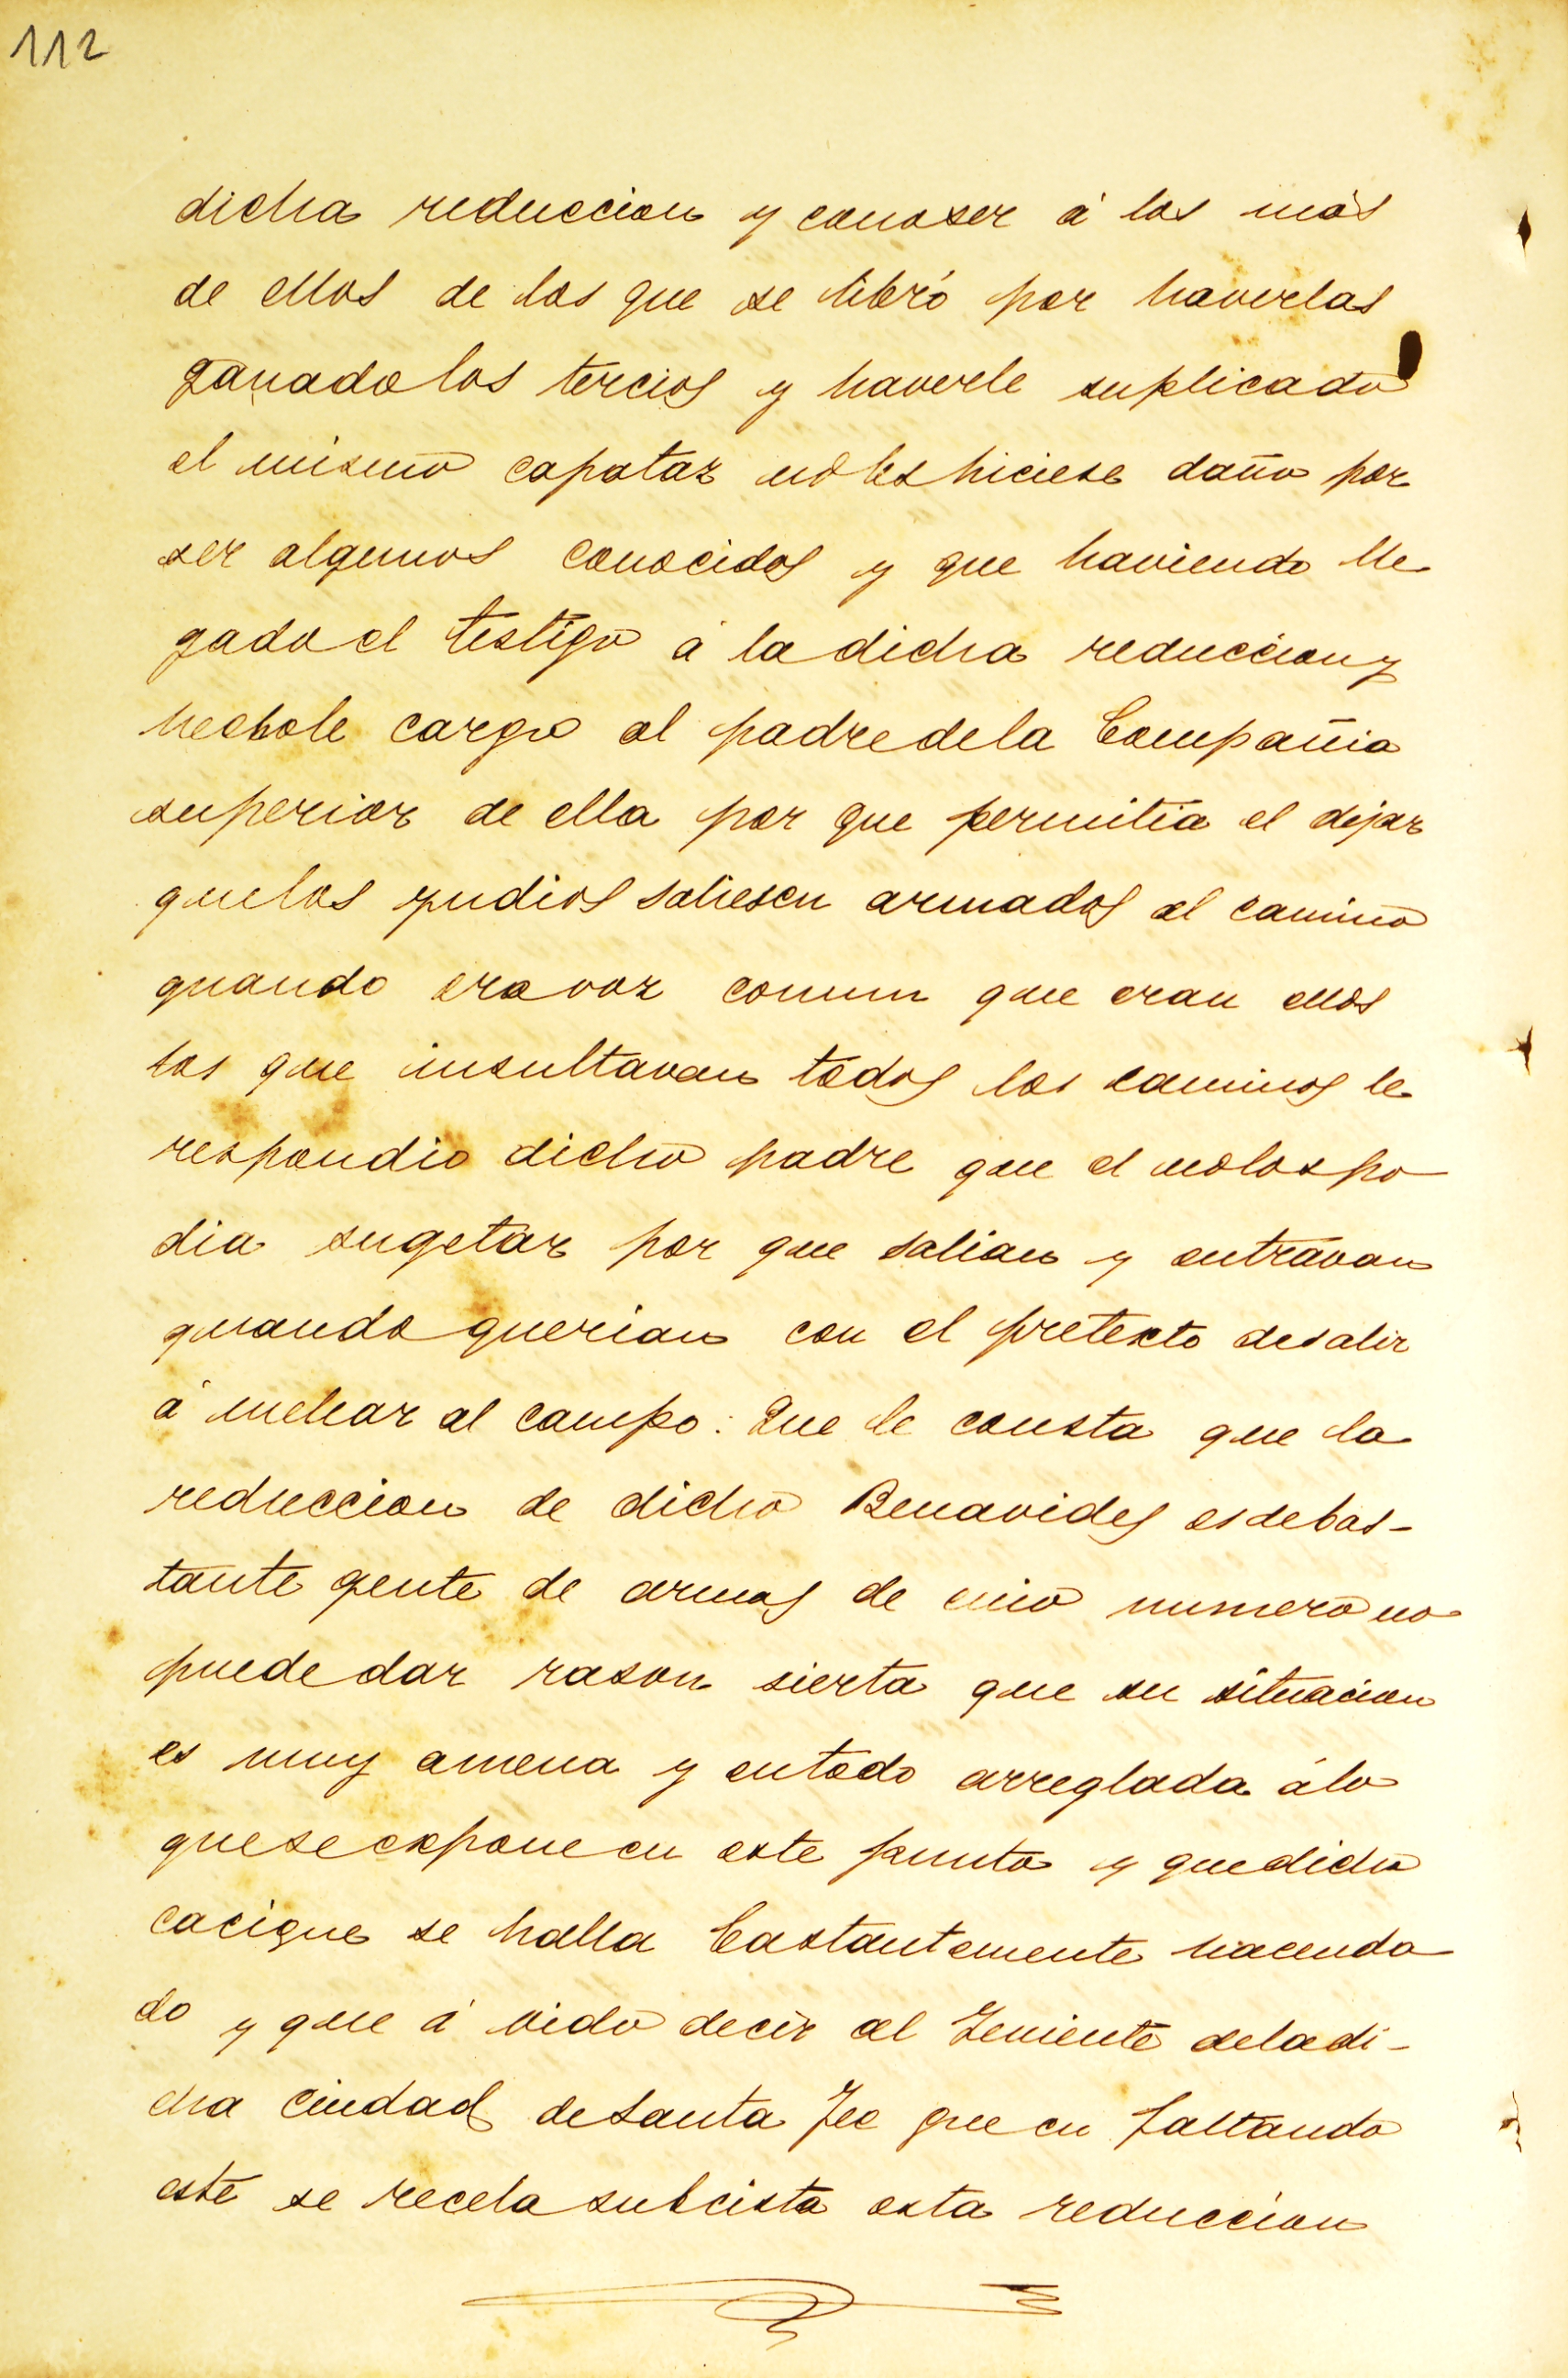 112
dicha reduccion y conoser á los más
de ellos de los que se libró por haverlas
ganado los tercios y haverle suplicado
el mismo capataz no les hiciese daño por
ser algunos conocidos y que haviendo lle
gado el testigo á la dicha reduccion y
hechole cargo al padre dela Compañia
superior de ella por que permitia el dejar
que los yndios saliesen armados al camino
quando era voz comun que eran ellos
los que insultavan todos los caminos le
respondio dicho padre que el no los po
dia sugetar por que salian y entravan
quando querian con el pretexto de salir
á melear al campo: Que le consta que la
reduccion de dicho Benavides es de bas-
tante gente de armas de cuio numero no
puede dar rason sierta que su situacion
es muy amena y en todo arreglada á lo
que se expone en este punto y que dicho
cacique se halla bastantemente hacenda
do y que á oido decir al Teniente de la di-
cha ciudad de Santa Fee que en faltando
este se recela subcista esta reduccion